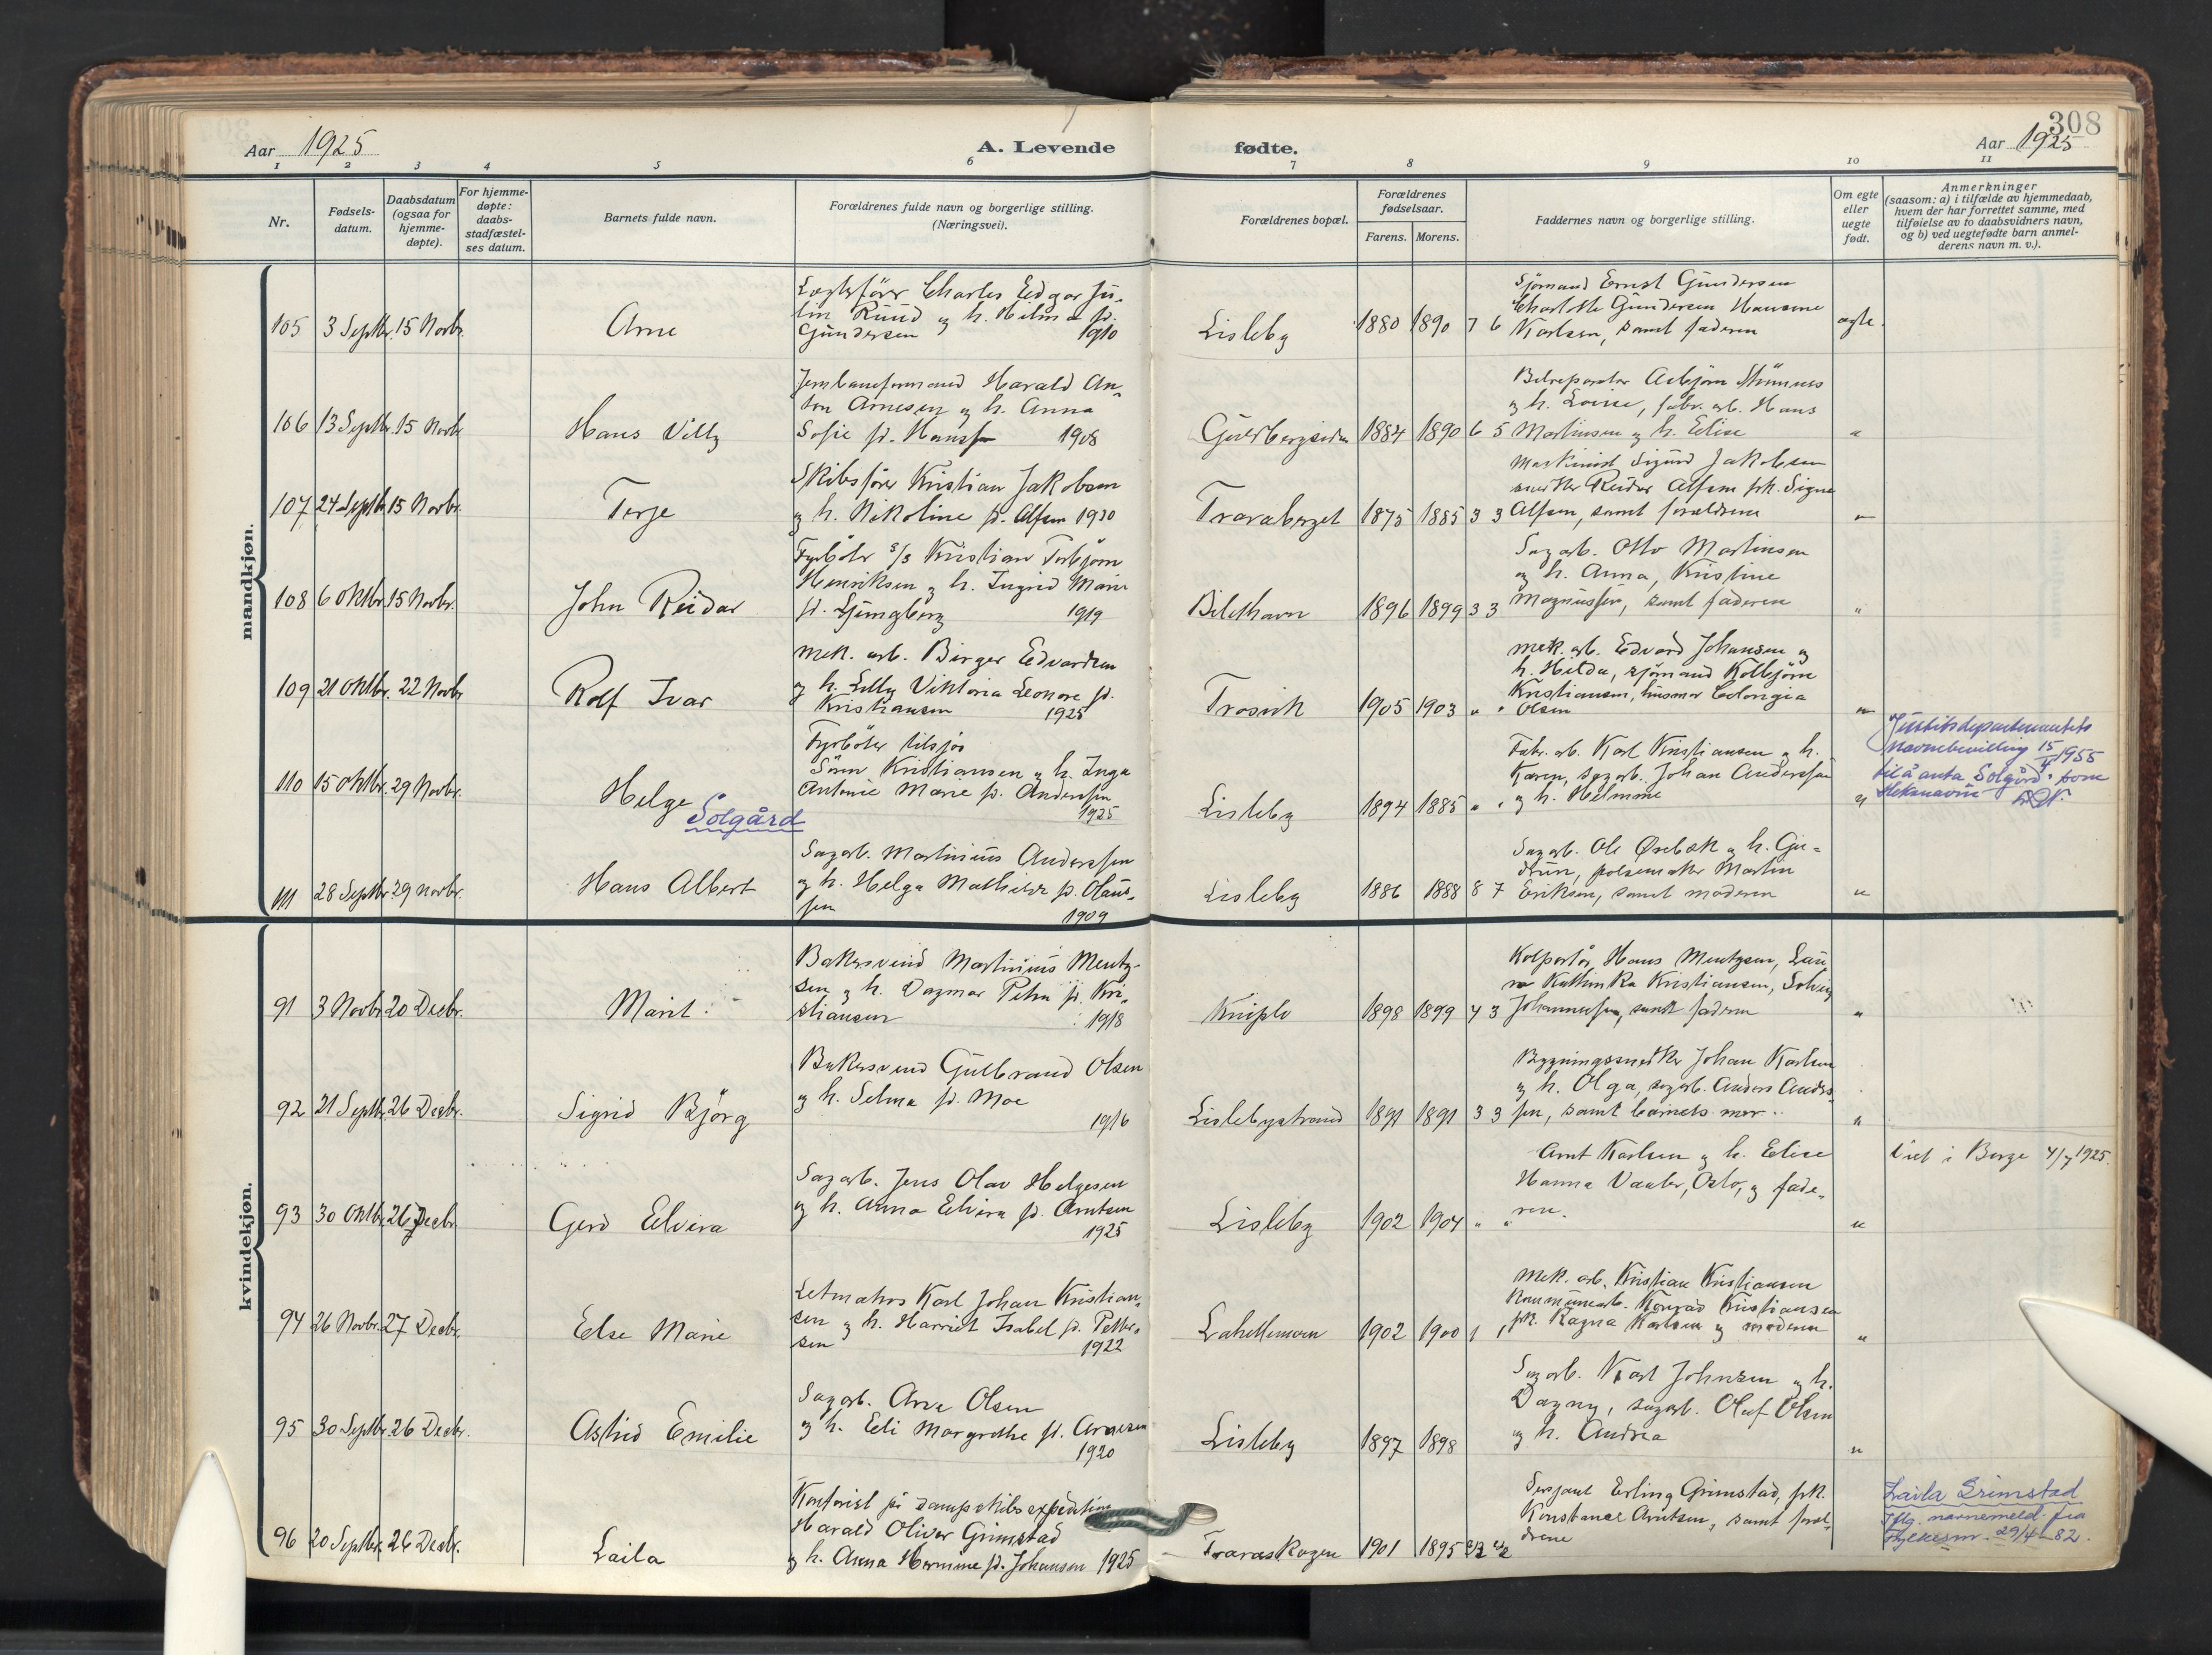 308
Aar 1925
A. Levende
fødte.
Aar 1925
1 2 3 4 5 6 7 8 9 10 11
Nr.
Fødsels-
datum.
Daabsdatum
(ogsaa for
hjemme-
døpte).
For hjemme-
døpte:
daabs-
stadfæstel-
ses datum.
Barnets fulde navn.
Forældrenes fulde navn og borgerlige stilling.
(Næringsvei).
Forældrenes bopæl.
Forældrenes
fødselsaar.
Farens. Morens.
Faddernes navn og borgerlige stilling.
Om egte
eller
uegte
født.
Anmerkninger
(saasom: a) i tilfælde av hjemmedaab,
hvem der har forrettet samme, med
tilføielse av to daabsvidners navn,
og b) ved uegtefødte barn anmel-
derens navn m. v.).
mandkjøn.
105 3 Septbr. 15 Novbr.
Arne
Charles Edgar Ju-
lin Ruud og h. Helma f.
Gundersen 1910
Lisleby 1880 1890 7 6
Sjømand Ernst Gundersen
Charlotte Gundersen
Karlsen, samt faderen
egte.
106 13 Septbr. 15 Novbr.
Hans Villy
Jernbaneformand Harald An-
ton Arnesen og h. Anna
Sofie f. Hanssen 1908
1884 1890 6 5
Bilreparatør Asbjørn
og h. Lovise, fabr. arb. Hans
Martinsen og h. Elise
"
107 24 Septbr. 15 Novbr.
Terje
Skibsfører Kristian Jakobsen
og h. Nikoline f. Alfsen 1910
Traraberget 1875 1885 3 3
Maskinist Sigurd Jakobsen
snekker Reidar Alfsen frk. Signe
Alfsen, samt forældrene
"
108 6 Oktbr. 15 Novbr.
John Reidar
Fyrbøter s/s Kristian Torbjørn
Henriksen og h. Ingrid Marie
f. Ljungberg 1919
Bilethavn 1896 1899 3 3
Sagarb. Otto Martinsen
og h. Anna, Kristine
Magnussen, samt faderen
"
109 21 Oktbr. 22 Novbr.
Rolf Ivar
Mek. arb. Birger Edvardsen
og h. Lilly Viktoria Leonore f.
Kristiansen 1925
Trosvik 1905 1903 " "
Mek. arb. Edvard Johansen og
h. Hilda, sjømand Kolbjørn
Kristiansen, husmor
Olsen
"
110 15 Oktbr. 29 Novbr.
Helge
Solgård
Fyrbøter tilsjøs
Søren Kristiansen og h. Inga
Antonie Marie f. Anderssen
1925
Lisleby 1894 1885 " "
Fabr. arb. Karl Kristiansen og h.
Karen, sagarb. Johan Anderssen
og h. Helmine
"
Justitsdepartementets
navnebevilling 15/4 1955
til å anta Solgård som
slektsnavn
111 28 Septbr. 29 Novbr.
Hans Albert
Sagarb. Martinius Anderssen
og h. Helga Mathilde f. Olaus-
sen 1909
Lisleby 1886 1888 8 7
Sagarb. Ole Ørebæk og h. Gu-
drun, pølsemaker Martin
Eriksen, samt moderen
"
kvindekjøn.
91 3 Novbr. 20 Decbr.
Marit
Bakersvend Martinius Mentz-
sen og h. Dagmar Petra f. Kri-
stiansen 1918
Kniple 1898 1899 4 3
Kolportør Hans Mentzsen, Lau-
ra Kathinka Kristiansen, Solveig
Johannessen, samt faderen
"
92 21 Septbr. 26 Decbr.
Sigrid Bjørg
Bakersvend Gulbrand Olsen
og h. Selma f. Moe
1916
Lislebystrand 1891 1891 3 3
Bygningssnekker Johan Karlsen
og h. Olga, sagarb. Anders Anders-
sen, samt barnets mor.
"
93 30 Oktbr. 26 Decbr.
Gerd Elvira
Sagarb. Jens Olav Helgesen
og h. Anna Elvira f. Arntsen
1925
Lisleby 1902 1904 " "
Arnt Karlsen og h. Elise
Hanna Vaaler, Oslo, og fade-
ren.
"
Viet i Borge 4/7 1925.
94 26 Novbr. 27 Decbr.
Else Marie
Letmatros Karl Johan Kristian-
sen og h. Harriet Isabel f. Petter-
sen 1922
Lahellemoen 1902 1900 1 1
Mek. arb. Kristian Kristiansen
Kommunearb. Konrad Kristiansen
frk. Ragna Karlsen og moderen
"
95 30 Septbr. 26 Decbr.
Astrid Emilie
Sagarb. Arve Olsen
og h. Edi Margrethe f. Arnesen
1920
Lisleby 1897 1898
Sagarb. Karl Johnsen og h.
Dagny, sagarb. Oluf Olsen
og h. Andrea
"
96 20 Septbr. 26 Decbr.
Laila
Kontorist på dampskibsexpedition
Harald Oliver Grimstad
og h. Anna Hermine f. Johansen 1925
Traraskogen 1901 1895
Sersjant Erling Grimstad, frk.
Konstanse Arntsen, samt foræl-
drene
Laila Grimstad
Iflg. navnemeld. fra
Fylkesm. 29/4-82.